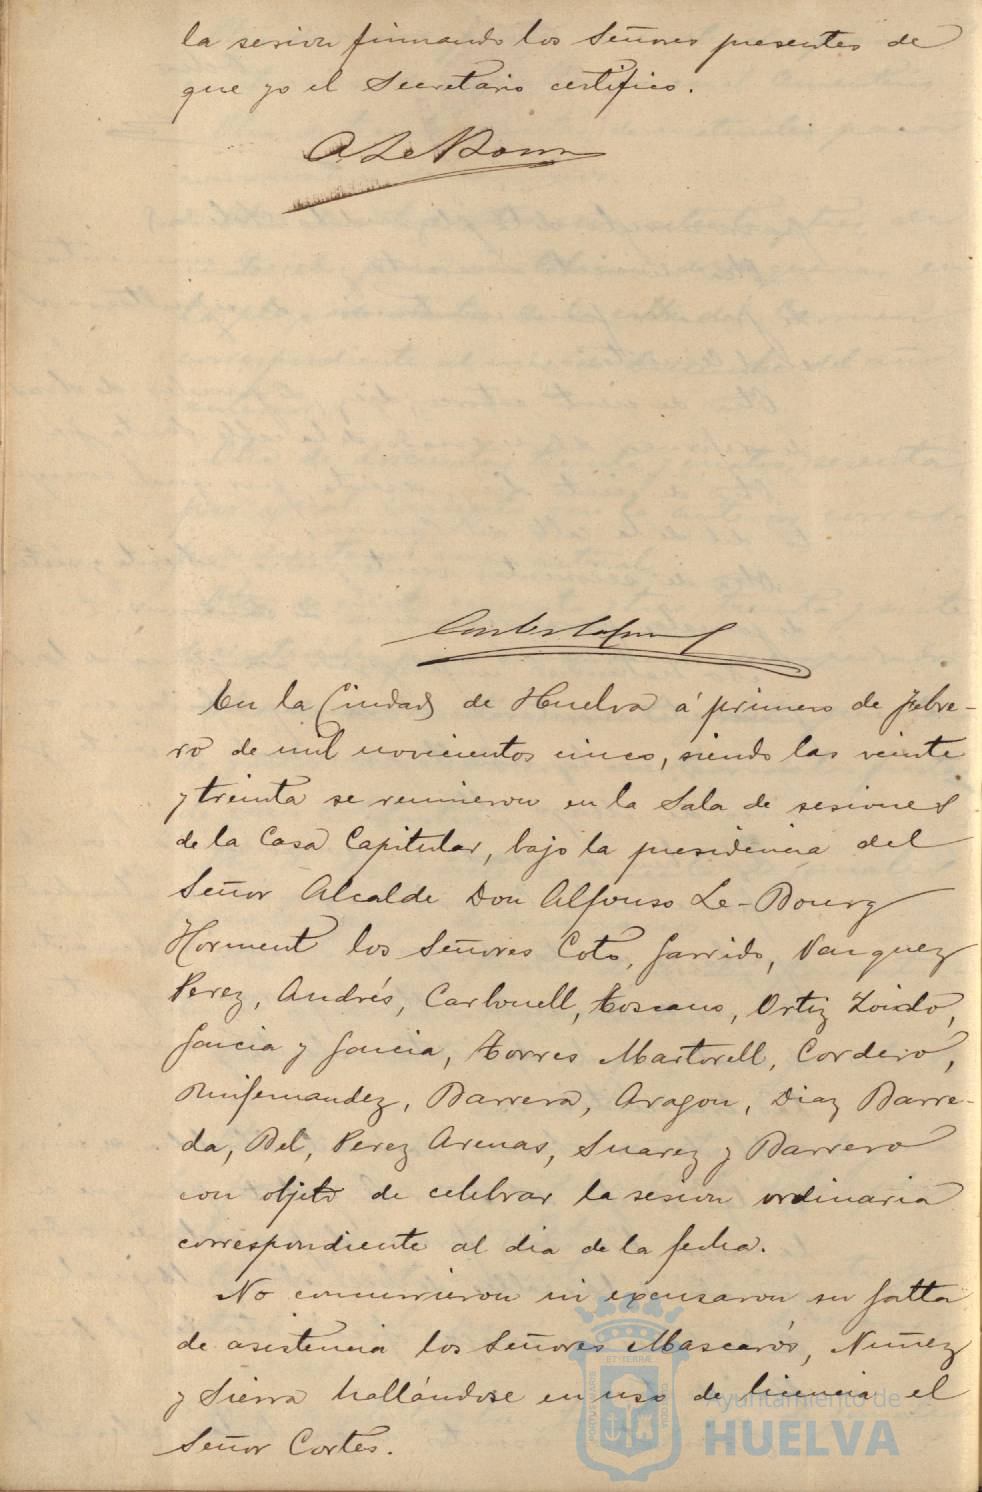 la sesion firmando los Señores presentes de
que yo el Secretario certifico.
A Le Bourg
En la Ciudad de Huelva á primero de Febre-
ro de mil novecientos cinco, siendo las veinte
y treinta se reunieron en la Sala de sesiones
de la Casa Capitular, bajo la presidencia del
Señor Alcalde Don Alfonso Le-Bourg
Horment los Señores Coto, Garrido, Vazquez
Perez, Andrés, Carbonell, Toscano, Ortiz Zoido,
Garcia y Garcia, Torres Martorell, Cordero,
Ruifernandez, Barrera, Aragon, Diaz Barre-
da, Bel, Perez Arenas, Suarez y Barrero
con objeto de celebrar la sesion ordinaria
correspondiente al dia de la fecha.
No concurrieron ni excusaron su falta
de asistencia los Señores Mascarós, Nuñez
y Sierra hallándose en uso de licencia el
Señor Cortes.
Ayuntamiento de
HUELVA